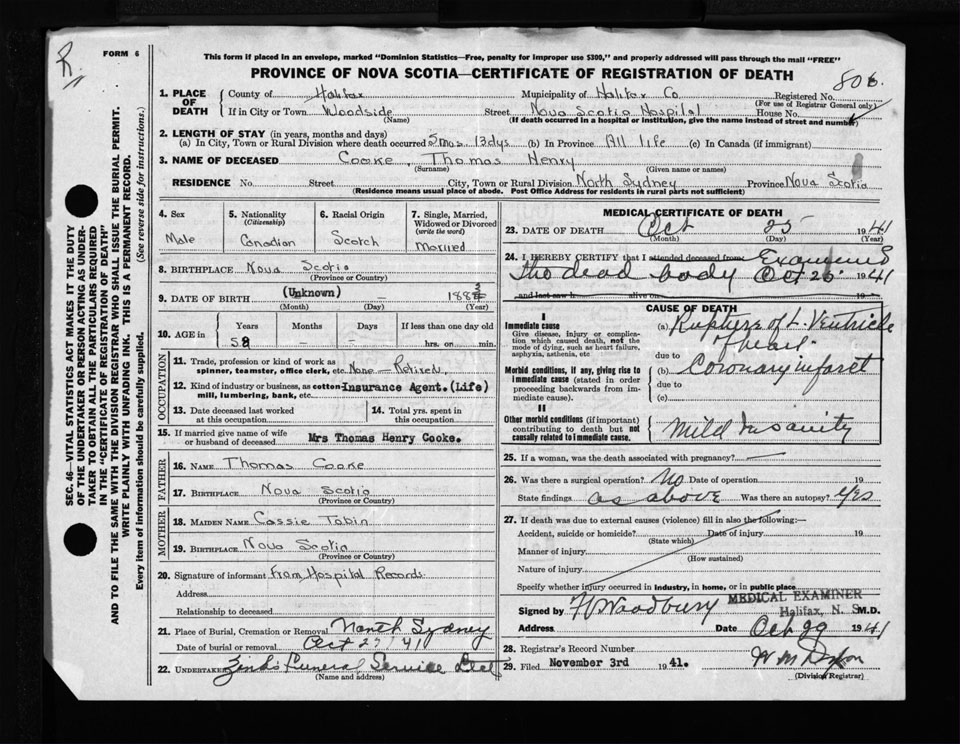 R.
FORM 6
This form if placed in an envelope, marked "Dominion Statistics—Free, penalty for improper use $300," and properly addressed will pass through the mail "FREE"
PROVINCE OF NOVA SCOTIA—CERTIFICATE OF REGISTRATION OF DEATH
806
SEC. 46—VITAL STATISTICS ACT MAKES IT THE DUTY
OF THE UNDERTAKER OR PERSON ACTING AS UNDER-
TAKER TO OBTAIN ALL THE PARTICULARS REQUIRED
IN THE "CERTIFICATE OF REGISTRATION OF DEATH"
AND TO FILE THE SAME WITH THE DIVISION REGISTRAR WHO SHALL ISSUE THE BURIAL PERMIT.
WRITE PLAINLY WITH UNFADING INK. THIS IS A PERMANENT RECORD.
Every item of information should be carefully supplied. (See reverse side for instructions.)
1. PLACE OF DEATH
County of Halifax Municipality of Halifax Co Registered No.
(For use of Registrar General only)
If in City or Town Woodside Street Nova Scotia Hospital House No.
(Name) (If death occurred in a hospital or institution, give the name instead of street and number)
2. LENGTH OF STAY (in years, months and days)
(a) In City, Town or Rural Division where death occurred 5 mos. 13 dys (b) In Province All life (c) In Canada (if immigrant)
3. NAME OF DECEASED Cooke, Thomas Henry
(Surname) (Given name or names)
RESIDENCE No. Street City, Town or Rural Division North Sydney Province Nova Scotia
(Residence means usual place of abode. Post Office Address for Residents in rural parts not sufficient)
4. Sex
Male
5. Nationality
(Citizenship)
Canadian
6. Racial Origin
Scotch
7. Single, Married,
Widowed or Divorced
(write the word)
Married
8. BIRTHPLACE Nova Scotia
(Province or Country)
9. DATE OF BIRTH (Unknown) – 188
(Month) (Day) (Year)
10. AGE in
Years Months Days If less than one day old
58 – – hrs. or min.
OCCUPATION
11. Trade, profession or kind of work as
spinner, teamster, office clerk, etc. None – Retired.
12. Kind of industry or business, as cotton- Insurance Agent. (Life)
mill, lumbering, bank, etc.
13. Date deceased last worked
at this occupation
14. Total yrs. spent in
this occupation
15. If married give name of wife
or husband of deceased Mrs Thomas Henry Cooke.
FATHER
16. NAME Thomas Cooke
17. BIRTHPLACE Nova Scotia
(Province or Country)
MOTHER
18. MAIDEN NAME Cassie Tobin
19. BIRTHPLACE Nova Scotia
(Province or Country)
20. Signature of informant From Hospital Records
Address
Relationship to deceased
21. Place of Burial, Cremation or Removal North Sydney
Date of burial or removal Oct 27 '41
22. UNDERTAKER Zink's Funeral Service Ltd
(Name and address)
MEDICAL CERTIFICATE OF DEATH
23. DATE OF DEATH Oct 25 1941
(Month) (Day) (Year)
24. I HEREBY CERTIFY that I attended deceased from Examined
the dead body Oct 26 1941
and last saw h alive on 19
CAUSE OF DEATH
I
Immediate cause
Give disease, injury or complica-
tion which caused death, not the
mode of dying, such as heart failure,
asphyxia, asthenia, etc
(a) Rupture of L. Ventricle
of heart
due to
Morbid conditions, if any, giving rise to
immediate cause (stated in order
proceeding backwards from im-
mediate cause).
(b) Coronary infarct
due to
(c)
II
Other morbid conditions (if important)
contributing to death but not
causally related to immediate cause.
Mild Insanity
25. If a woman, was the death associated with pregnancy? —
26. Was there a surgical operation? No Date of operation 19
State findings as above Was there an autopsy? Yes
27. If death was due to external causes (violence) fill in also the following:—
Accident, suicide or homicide? Date of injury 19
(State which)
Manner of injury
(How sustained)
Nature of injury
Specify whether injury occurred in Industry, in home, or in public place
Signed by Woodbury MEDICAL EXAMINER
Halifax, N. S. M.D.
Address Date Oct 29 1941
28. Registrar's Record Number
29. Filed November 3rd 1941.
(Division Registrar)